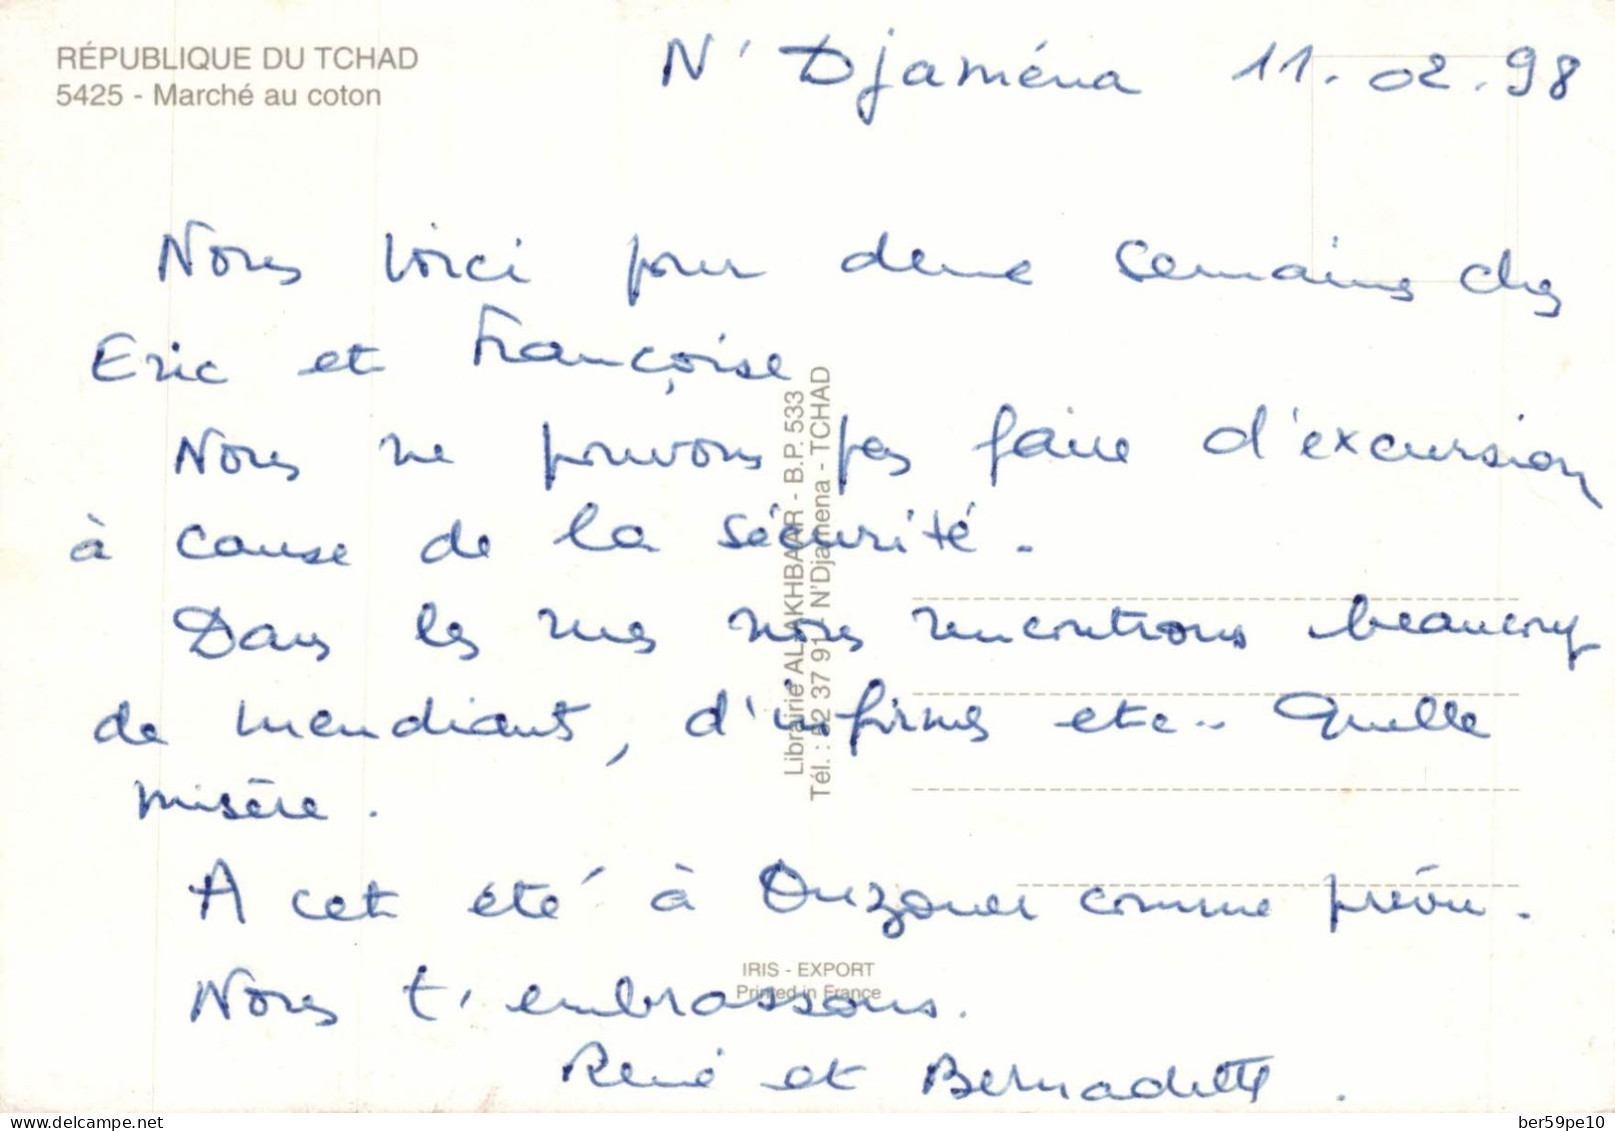 RÉPUBLIQUE DU TCHAD
5425 - Marché au coton
N'Djaména 11.02.98
Nous voici pour deux semaines chez
Eric et Françoise
Nous ne pouvons pas faire d'excursion
à cause de la sécurité.
Dans les rues nous rencontrons beaucoup
de mendiants, d'infirmes etc.. Quelle
misère.
A cet été à Ouzouer comme prévu.
Nous t'embrassons.
René et Bernadette.
Librairie AL AKHBAAR - B.P. 533
Tél. : 52 37 91 N'Djamena - TCHAD
IRIS - EXPORT
Printed in France
delcampe.net
ber59pe10